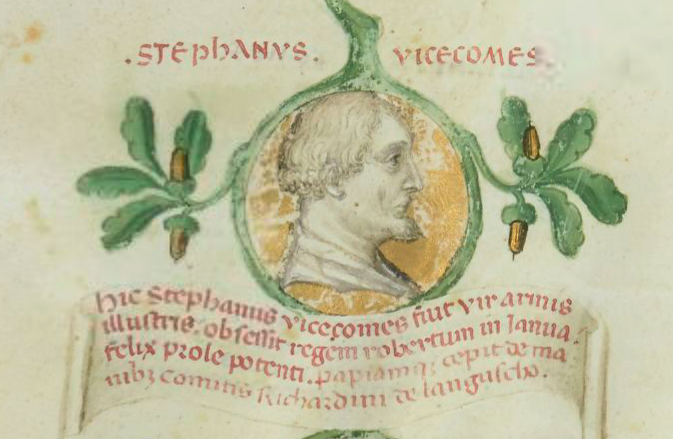 .STEPhANVS. VICECOMES.
hic Stephanus vicecomes fiut vir armis
illustris. obsessit regem robertum in Ianua.
felix prole potenti. papiamq; cepit de ma
nibȝ Comitis Richardini de languscho.